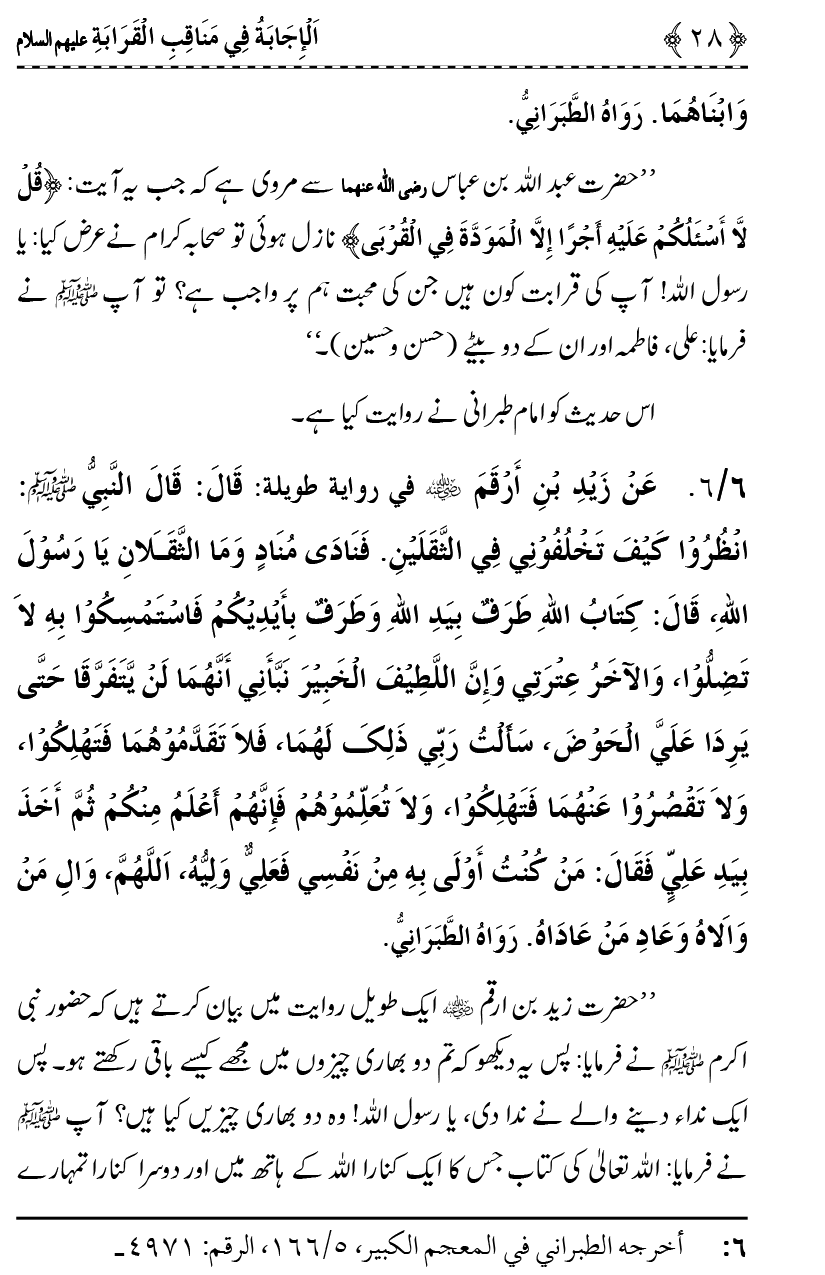 ﴿٢٨﴾ اَلْإِجَابَةُ فِي مَنَاقِبِ الْقَرَابَةِ علیهم السلام
وَابْنَاهُمَا. رَوَاهُ الطَّبَرَانِيُّ.
’’حضرت عبد اللہ بن عباس رضی الله عنهما سے مروی ہے کہ جب یہ آیت: ﴿قُلْ
لَّا أَسْئَلُكُمْ عَلَيْهِ أَجْرًا إِلَّا الْمَوَدَّةَ فِي الْقُرْبَى﴾ نازل ہوئی تو صحابہ کرام نے عرض کیا: یا
رسول اللہ! آپ کی قرابت کون ہیں جن کی محبت ہم پر واجب ہے؟ تو آپ ﷺ نے
فرمایا: علی، فاطمہ اور ان کے دو بیٹے (حسن وحسین)۔‘‘
اس حدیث کو امام طبرانی نے روایت کیا ہے۔
٦/٦. عَنْ زَيْدِ بْنِ أَرْقَمَ رضی اللہ عنہ في روایة طویلة: قَالَ: قَالَ النَّبِيُّ ﷺ:
انْظُرُوْا كَيْفَ تَخْلُفُوْنِي فِي الثَّقَلَيْنِ. فَنَادَى مُنَادٍ وَمَا الثَّقَلَانِ يَا رَسُوْلَ
اللهِ، قَالَ: كِتَابُ اللهِ طَرَفٌ بِيَدِ اللهِ وَطَرَفٌ بِأَيْدِيْكُمْ فَاسْتَمْسِكُوْا بِهِ لَا
تَضِلُّوْا، وَالآخَرُ عِتْرَتِي وَإِنَّ اللَّطِيْفَ الْخَبِيْرَ نَبَّأَنِي أَنَّهُمَا لَنْ يَّتَفَرَّقَا حَتَّى
يَرِدَا عَلَيَّ الْحَوْضَ، سَأَلْتُ رَبِّي ذَلِکَ لَهُمَا، فَلَا تَقَدَّمُوْهُمَا فَتَهْلِكُوْا،
وَلَا تَقْصُرُوْا عَنْهُمَا فَتَهْلِكُوْا، وَلَا تُعَلِّمُوْهُمْ فَإِنَّهُمْ أَعْلَمُ مِنْكُمْ ثُمَّ أَخَذَ
بِيَدِ عَلِيٍّ فَقَالَ: مَنْ كُنْتُ أَوْلَى بِهِ مِنْ نَفْسِي فَعَلِيٌّ وَلِيُّهُ، اَللَّهُمَّ، وَالِ مَنْ
وَالَاهُ وَعَادِ مَنْ عَادَاهُ. رَوَاهُ الطَّبَرَانِيُّ.
’’حضرت زید بن ارقم رضی اللہ عنہ ایک طویل روایت میں بیان کرتے ہیں کہ حضور نبی
اکرم ﷺ نے فرمایا: پس یہ دیکھو کہ تم دو بھاری چیزوں میں مجھے کیسے باقی رکھتے ہو۔ پس
ایک نداء دینے والے نے ندا دی، یا رسول اللہ! وہ دو بھاری چیزیں کیا ہیں؟ آپ ﷺ
نے فرمایا: اللہ تعالیٰ کی کتاب جس کا ایک کنارا اللہ کے ہاتھ میں اور دوسرا کنارا تمہارے
٦: أخرجه الطبراني في المعجم الكبير، ٥/١٦٦، الرقم: ٤٩٧١۔